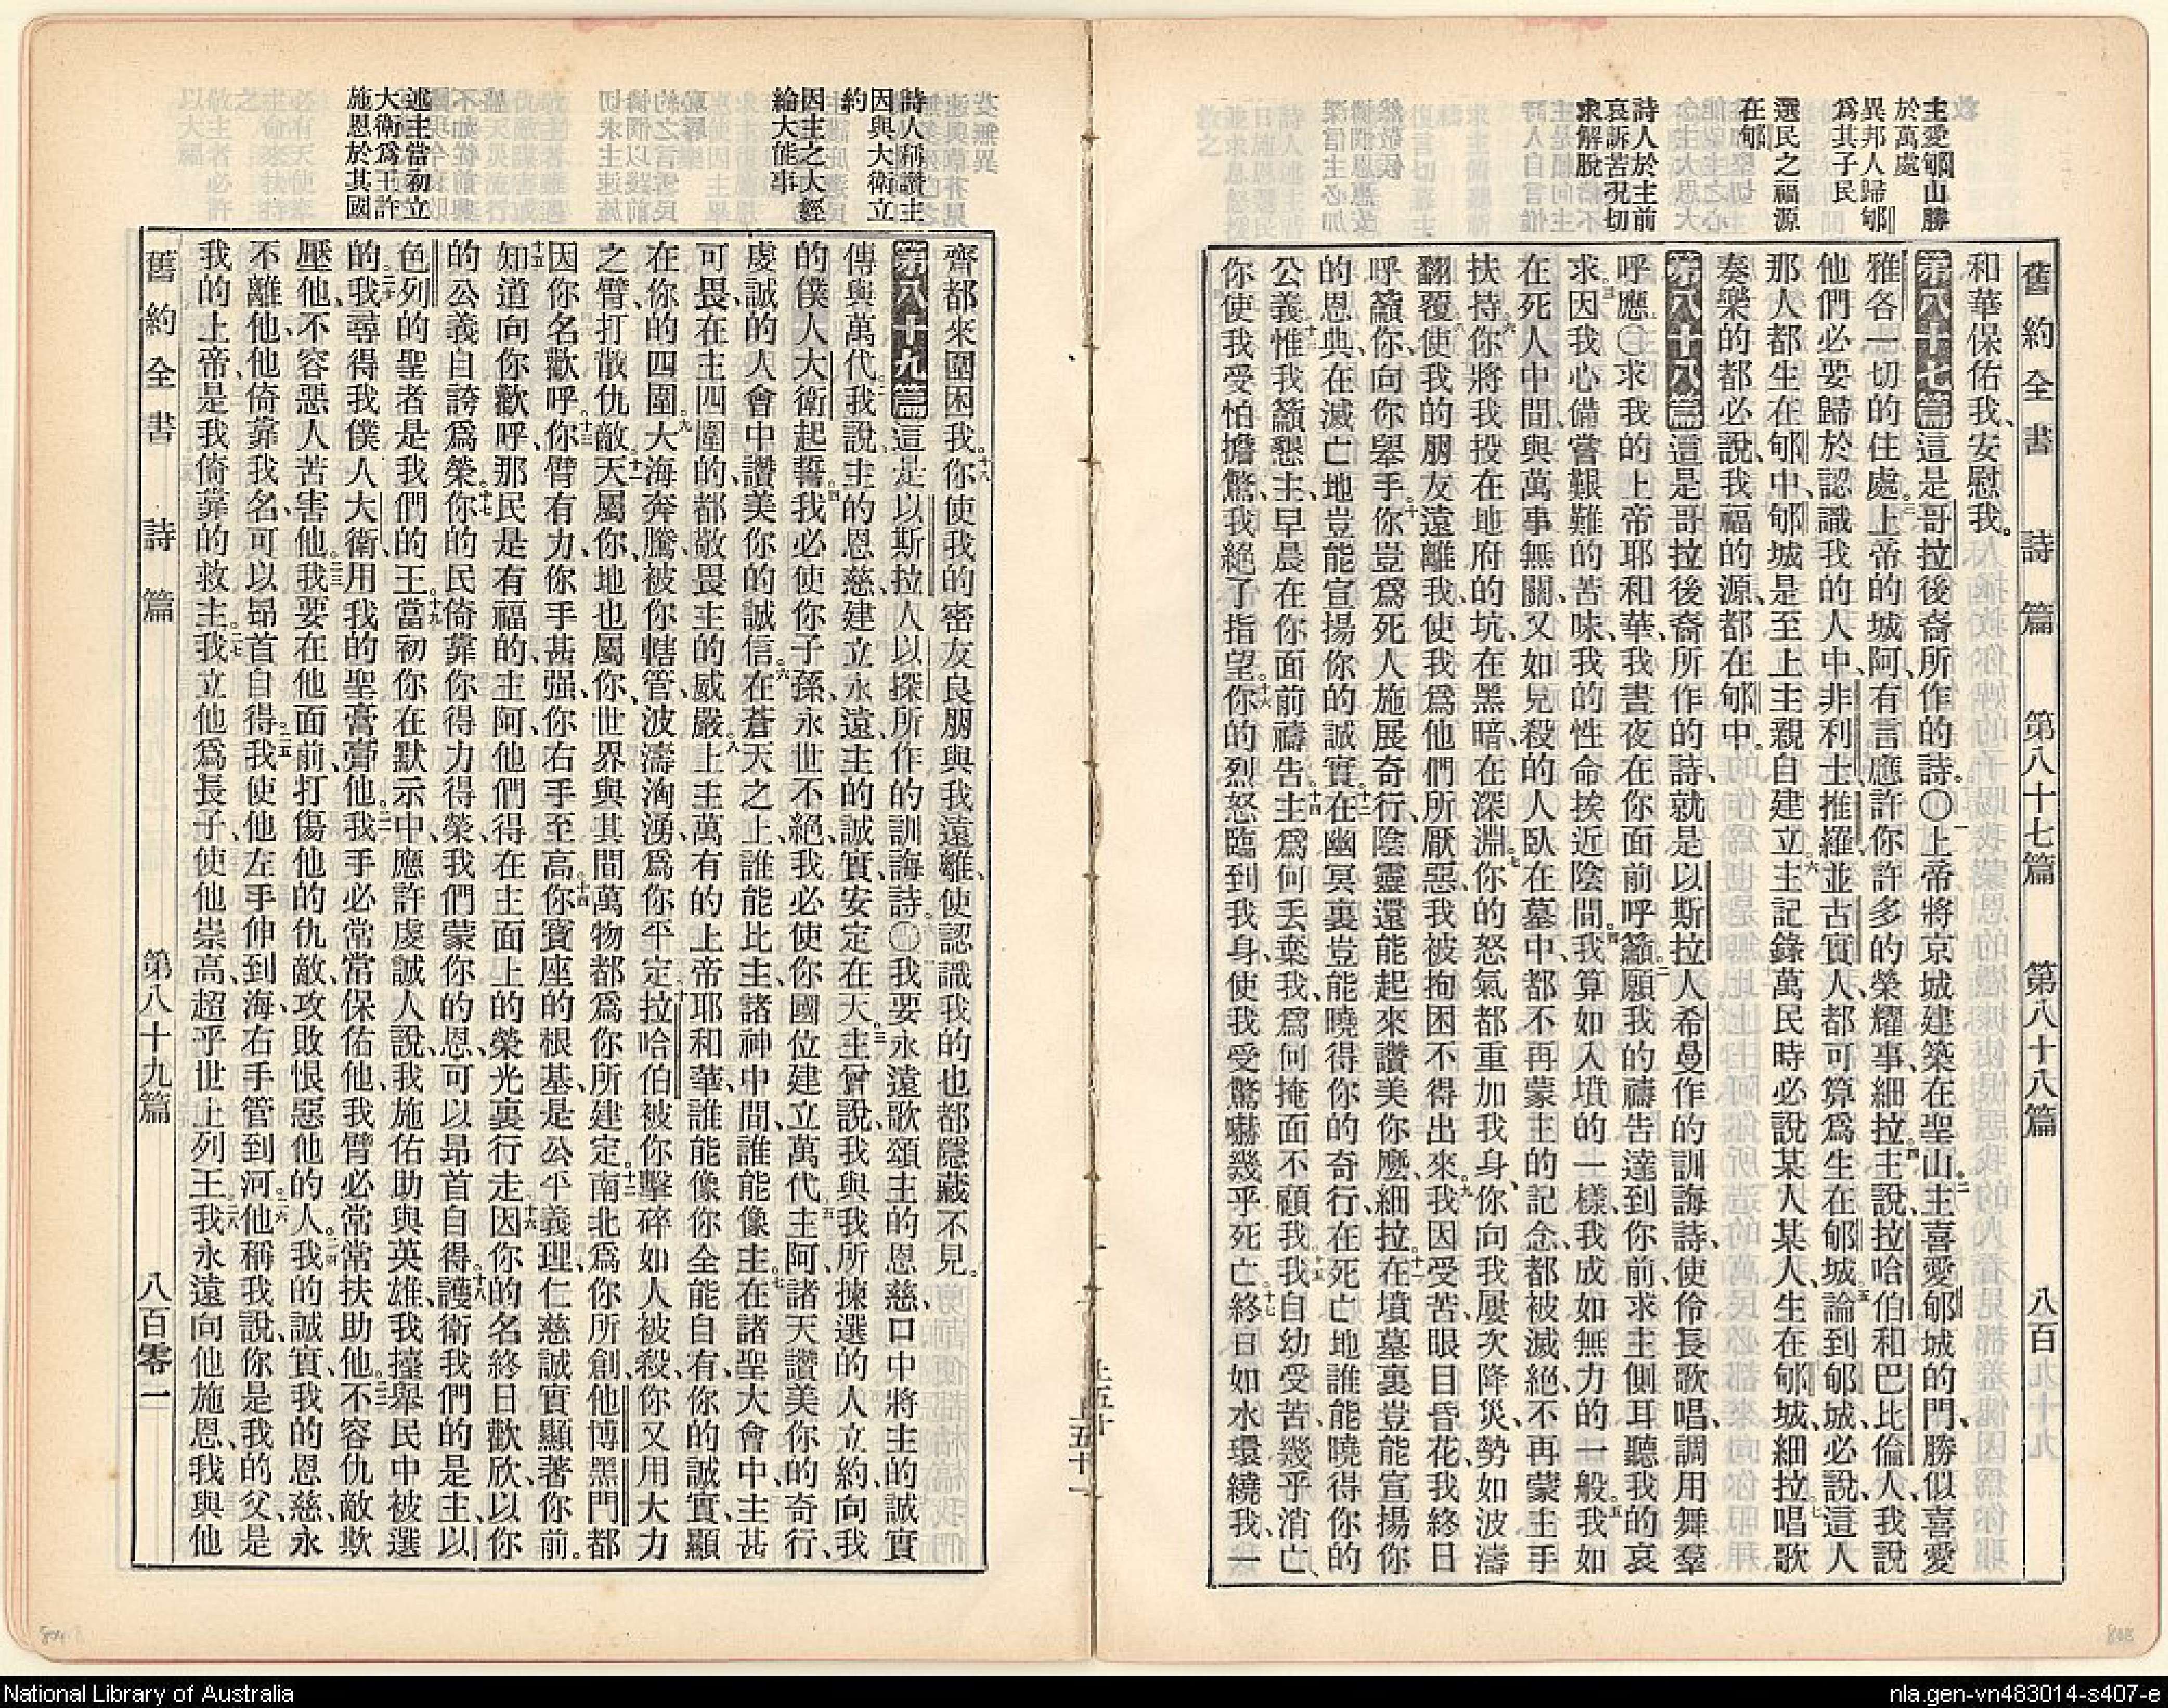 舊約全書 詩篇 第八十七篇 第八十八篇 八百
主愛郇山勝
於萬處
異邦人歸郇
爲其子民
選民之福源
在郇
詩人於主前
哀訴苦況切
求解脫
和華保佑我、安慰我。
第八十七篇 這是哥拉後裔所作的詩。〇一上帝將京城建築在聖山。二主喜愛郇城的門、勝似喜愛
雅各一切的住處。三上帝的城阿、有言應許你許多的榮耀事、細拉。四主說、拉哈伯和巴比倫人、我說
他們必要歸於認識我的人中、非利士推羅、並古實人、都可算爲生在郇城。五論到郇城、必說、這人
那人都生在郇中、郇城是至上主親自建立。六主記錄萬民時必說某人某人、生在郇城、細拉。七唱歌
奏樂的都必說、我福的源、都在郇中。
第八十八篇 這是哥拉後裔所作的詩、就是以斯拉人希曼作的訓誨詩、使伶長歌唱、調用舞羣
呼應〇一求我的上帝耶和華、我晝夜在你面前呼籲。二願我的禱告達到你前、求主側耳聽我的哀
求。三因我心備嘗艱難的苦味、我的性命挨近陰間。四我算如入墳的一樣、我成如無力的一般。五我如
在死人中間、與萬事無關、又如見殺的人臥在墓中、都不再蒙主的記念、都被滅絕、不再蒙主手
扶持。六你將我投在地府的坑、在黑暗、在深淵。七你的怒氣都重加我身、你向我屢次降災、勢如波濤
翻覆。八使我的朋友遠離我、使我爲他們所厭惡、我被拘困不得出來。九我因受苦、眼目昏花、我終日
呼籲你、向你舉手。十你豈爲死人施展奇行、陰靈還能起來讚美你麽、細拉。十一在墳墓裏豈能宣揚你
的恩典、在滅亡地豈能宣揚你的誠實。十二在幽冥裏豈能曉得你的奇行、在死亡地誰能曉得你的
公義。十三惟我籲懇主、早晨在你面前禱告。十四主爲何丟棄我、爲何掩面不顧我。十五我自幼受苦、幾乎消亡、
你使我受怕擔驚、我絕了指望。十六你的烈怒臨到我身、使我受驚嚇幾乎死亡。十七終日如水環繞我、一
詩人稱讚主
因與大衛立
約
因主之大經
綸大能事
述主當初立
大衛爲王許
施恩於其國
齊都來圍困我。十八你使我的密友良朋與我遠離、使認識我的也都隱藏不見。
第八十九篇 這是以斯拉人以探所作的訓誨詩。〇一我要永遠歌頌主的恩慈、口中將主的誠實
傳與萬代。二我說、主的恩慈建立永遠、主的誠實、安定在天。三主曾說、我與我所揀選的人立約、向我
的僕人大衛起誓。四我必使你子孫、永世不絕、我必使你國位建立萬代。五主阿、諸天讚美你的奇行、
虔誠的人會中讚美你的誠信。六在蒼天之上、誰能比主、諸神中間、誰能像主。七在諸聖大會中、主甚
可畏、在主四圍的、都敬畏主的威嚴。八上主萬有的上帝耶和華、誰能像你全能自有、你的誠實、顯
在你的四圍。九大海奔騰、被你轄管、波濤洶湧、爲你平定。十拉哈伯被你擊碎如人被殺、你又用大力
之臂、打散仇敵。十一天屬你、地也屬你、世界與其間萬物都爲你所建定。十二南北爲你所創、他博黑門都
因你名歡呼。十三你臂有力、你手甚强、你右手至高。十四你寳座的根基、是公平義理、仁慈誠實、顯著你前。
十五知道向你歡呼、那民是有福的、主阿、他們得在主面上的榮光裏行走。十六因你的名終日歡欣、以你
的公義自誇爲榮。十七你的民倚靠你得力得榮、我們蒙你的恩、可以昂首自得。十八護衛我們的是主、以
色列的聖者是我們的王。十九當初你在默示中、應許虔誠人說、我施佑助與英雄、我擡舉民中被選
的。二十我尋得我僕人大衛、用我的聖膏膏他。二一我手必常常保佑他、我臂必常常扶助他。二二不容仇敵欺
壓他、不容惡人苦害他。二三我要在他面前、打傷他的仇敵、攻敗恨惡他的人。二四我的誠實、我的恩慈、永
不離他、他倚靠我名、可以昂首自得。二五我使他左手伸到海、右手管到河。二六他稱我說、你是我的父、是
我的上帝、是我倚靠的救主。二七我立他爲長子、使他崇高、超乎世上列王。二八我永遠向他施恩、我與他
舊約全書 詩篇 第八十九篇 八百零一
National Library of Australia
nla.gen-vn483014-s407-e